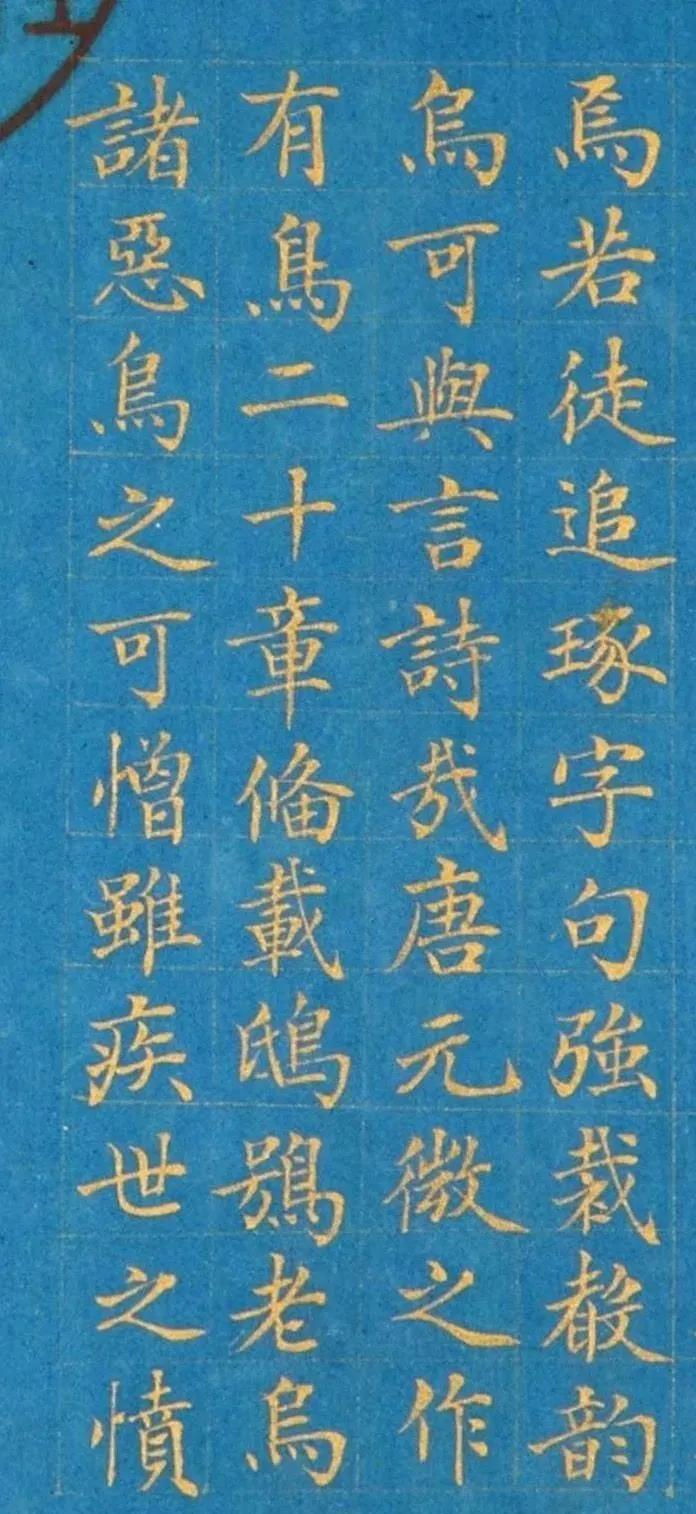 焉若徒追琢字句強裁散韵
烏可與言詩哉唐元微之作
有鳥二十章備載鴟鴞老烏
諸惡鳥之可憎雖疾世之憤